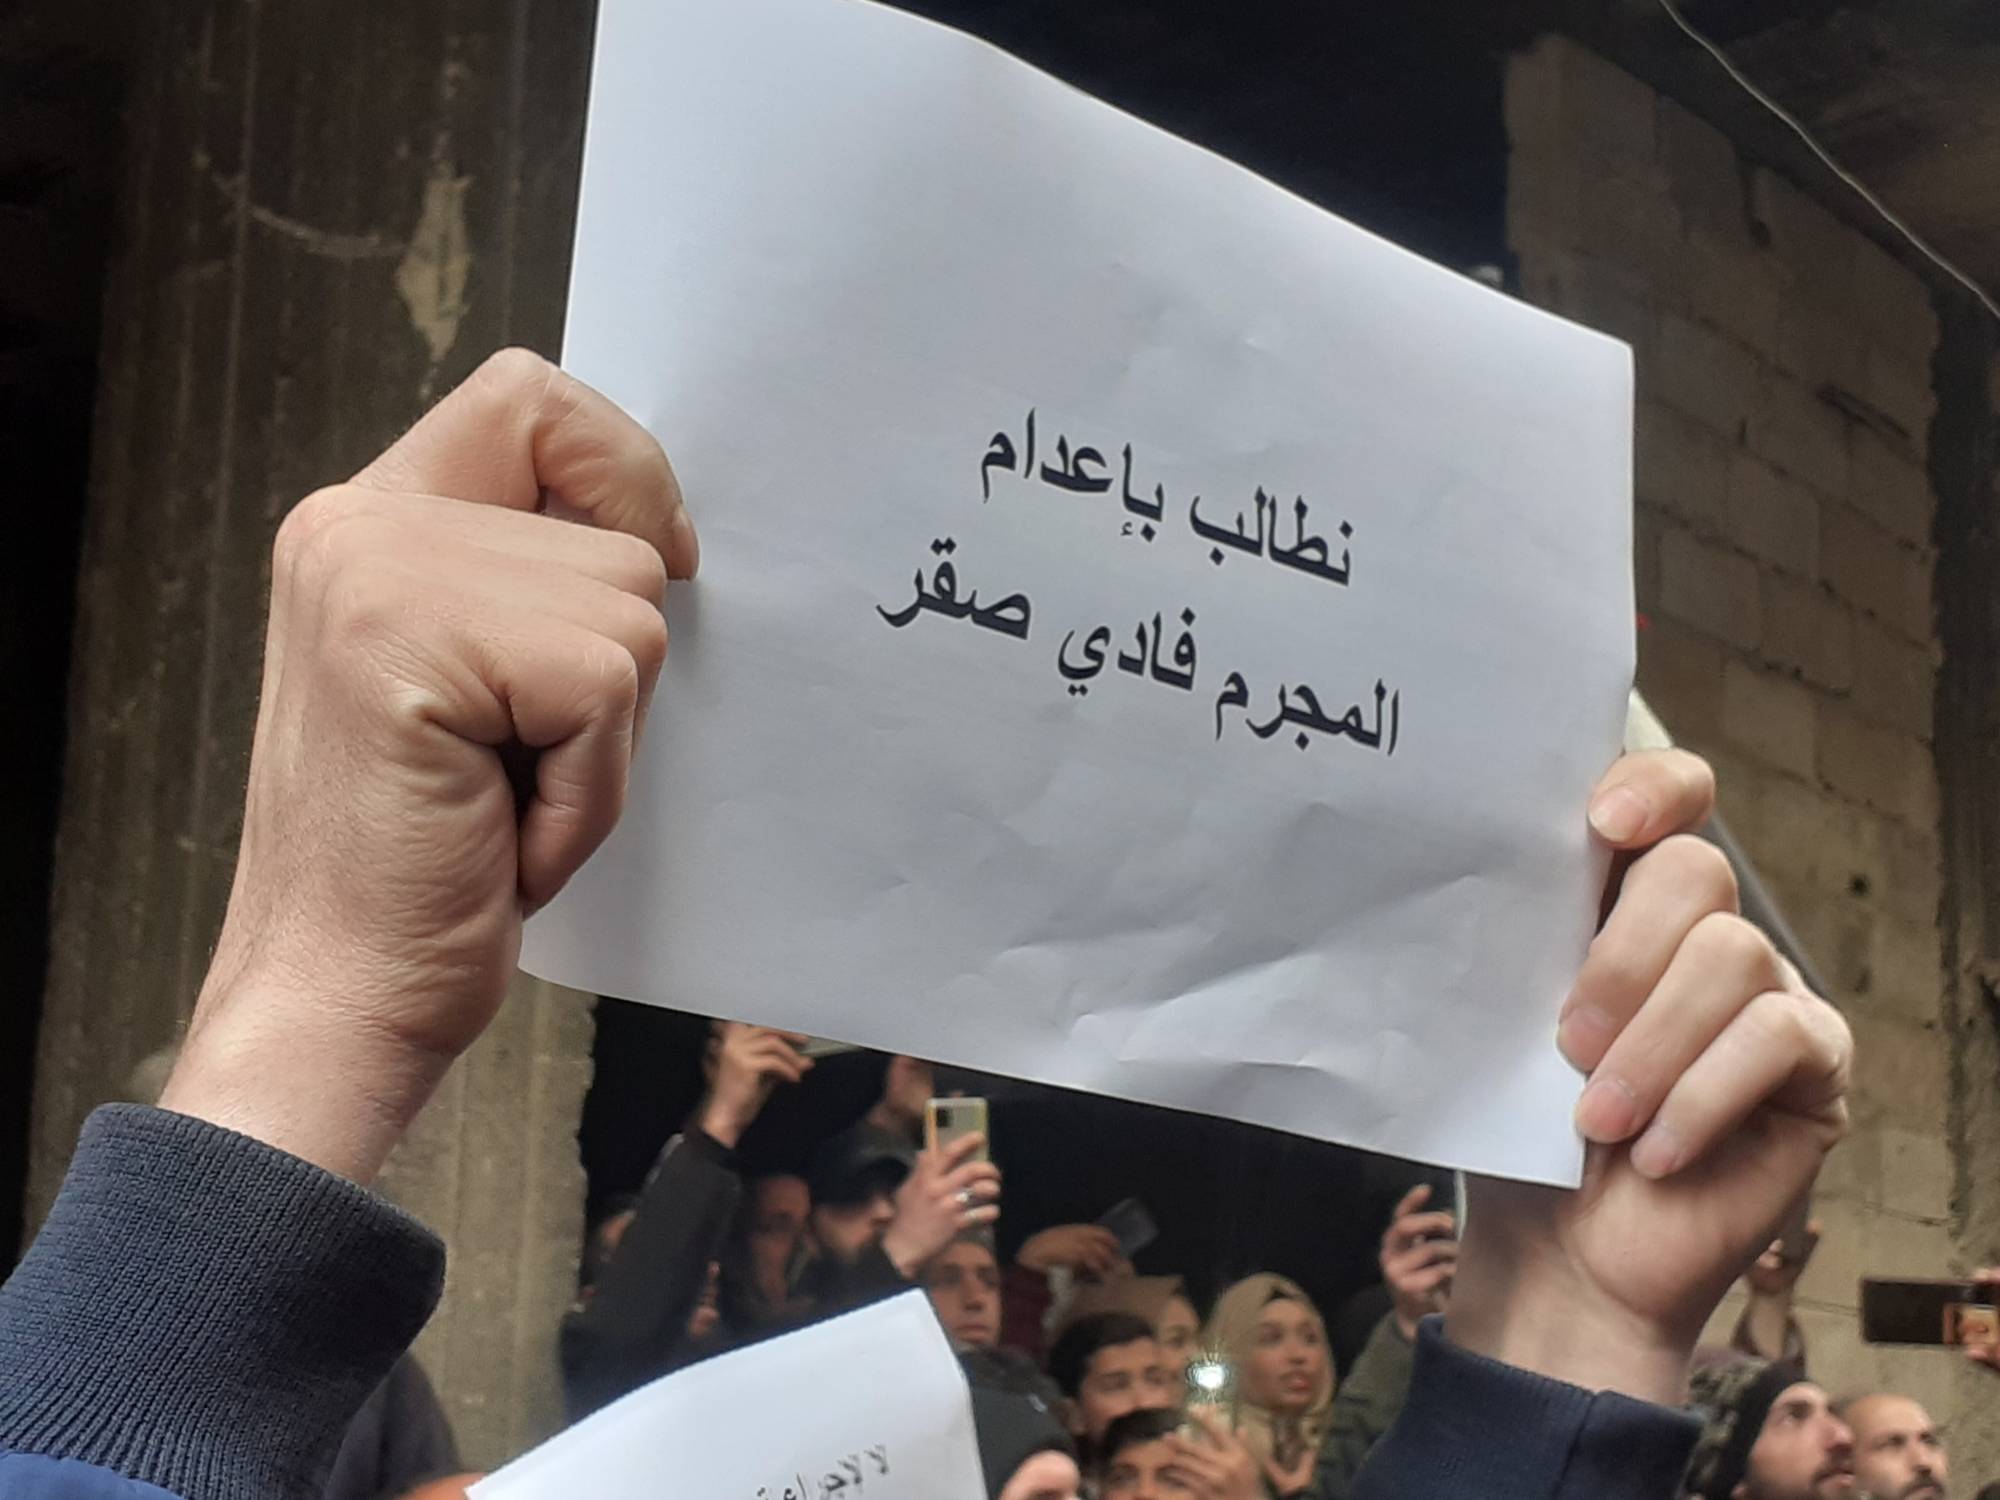 نطالب بإعدام
المجرم فادي صقر
لا لإجراء